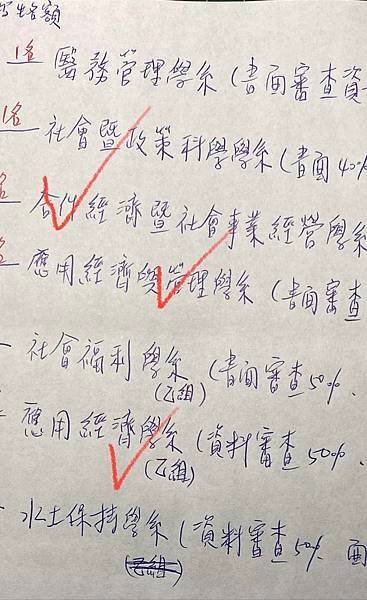 名額
1名 醫務管理學系(書面審查資
名 社會暨政策科學學系(書面40%
名 合作經濟暨社會事業經營學系
名 應用經濟與管理學系(書面審查
社會福利學系(書面審查50%.
(乙組)
應用經濟學系(資料審查50%.
(乙組)
水土保持學系(資料審查50% 面
(乙組)